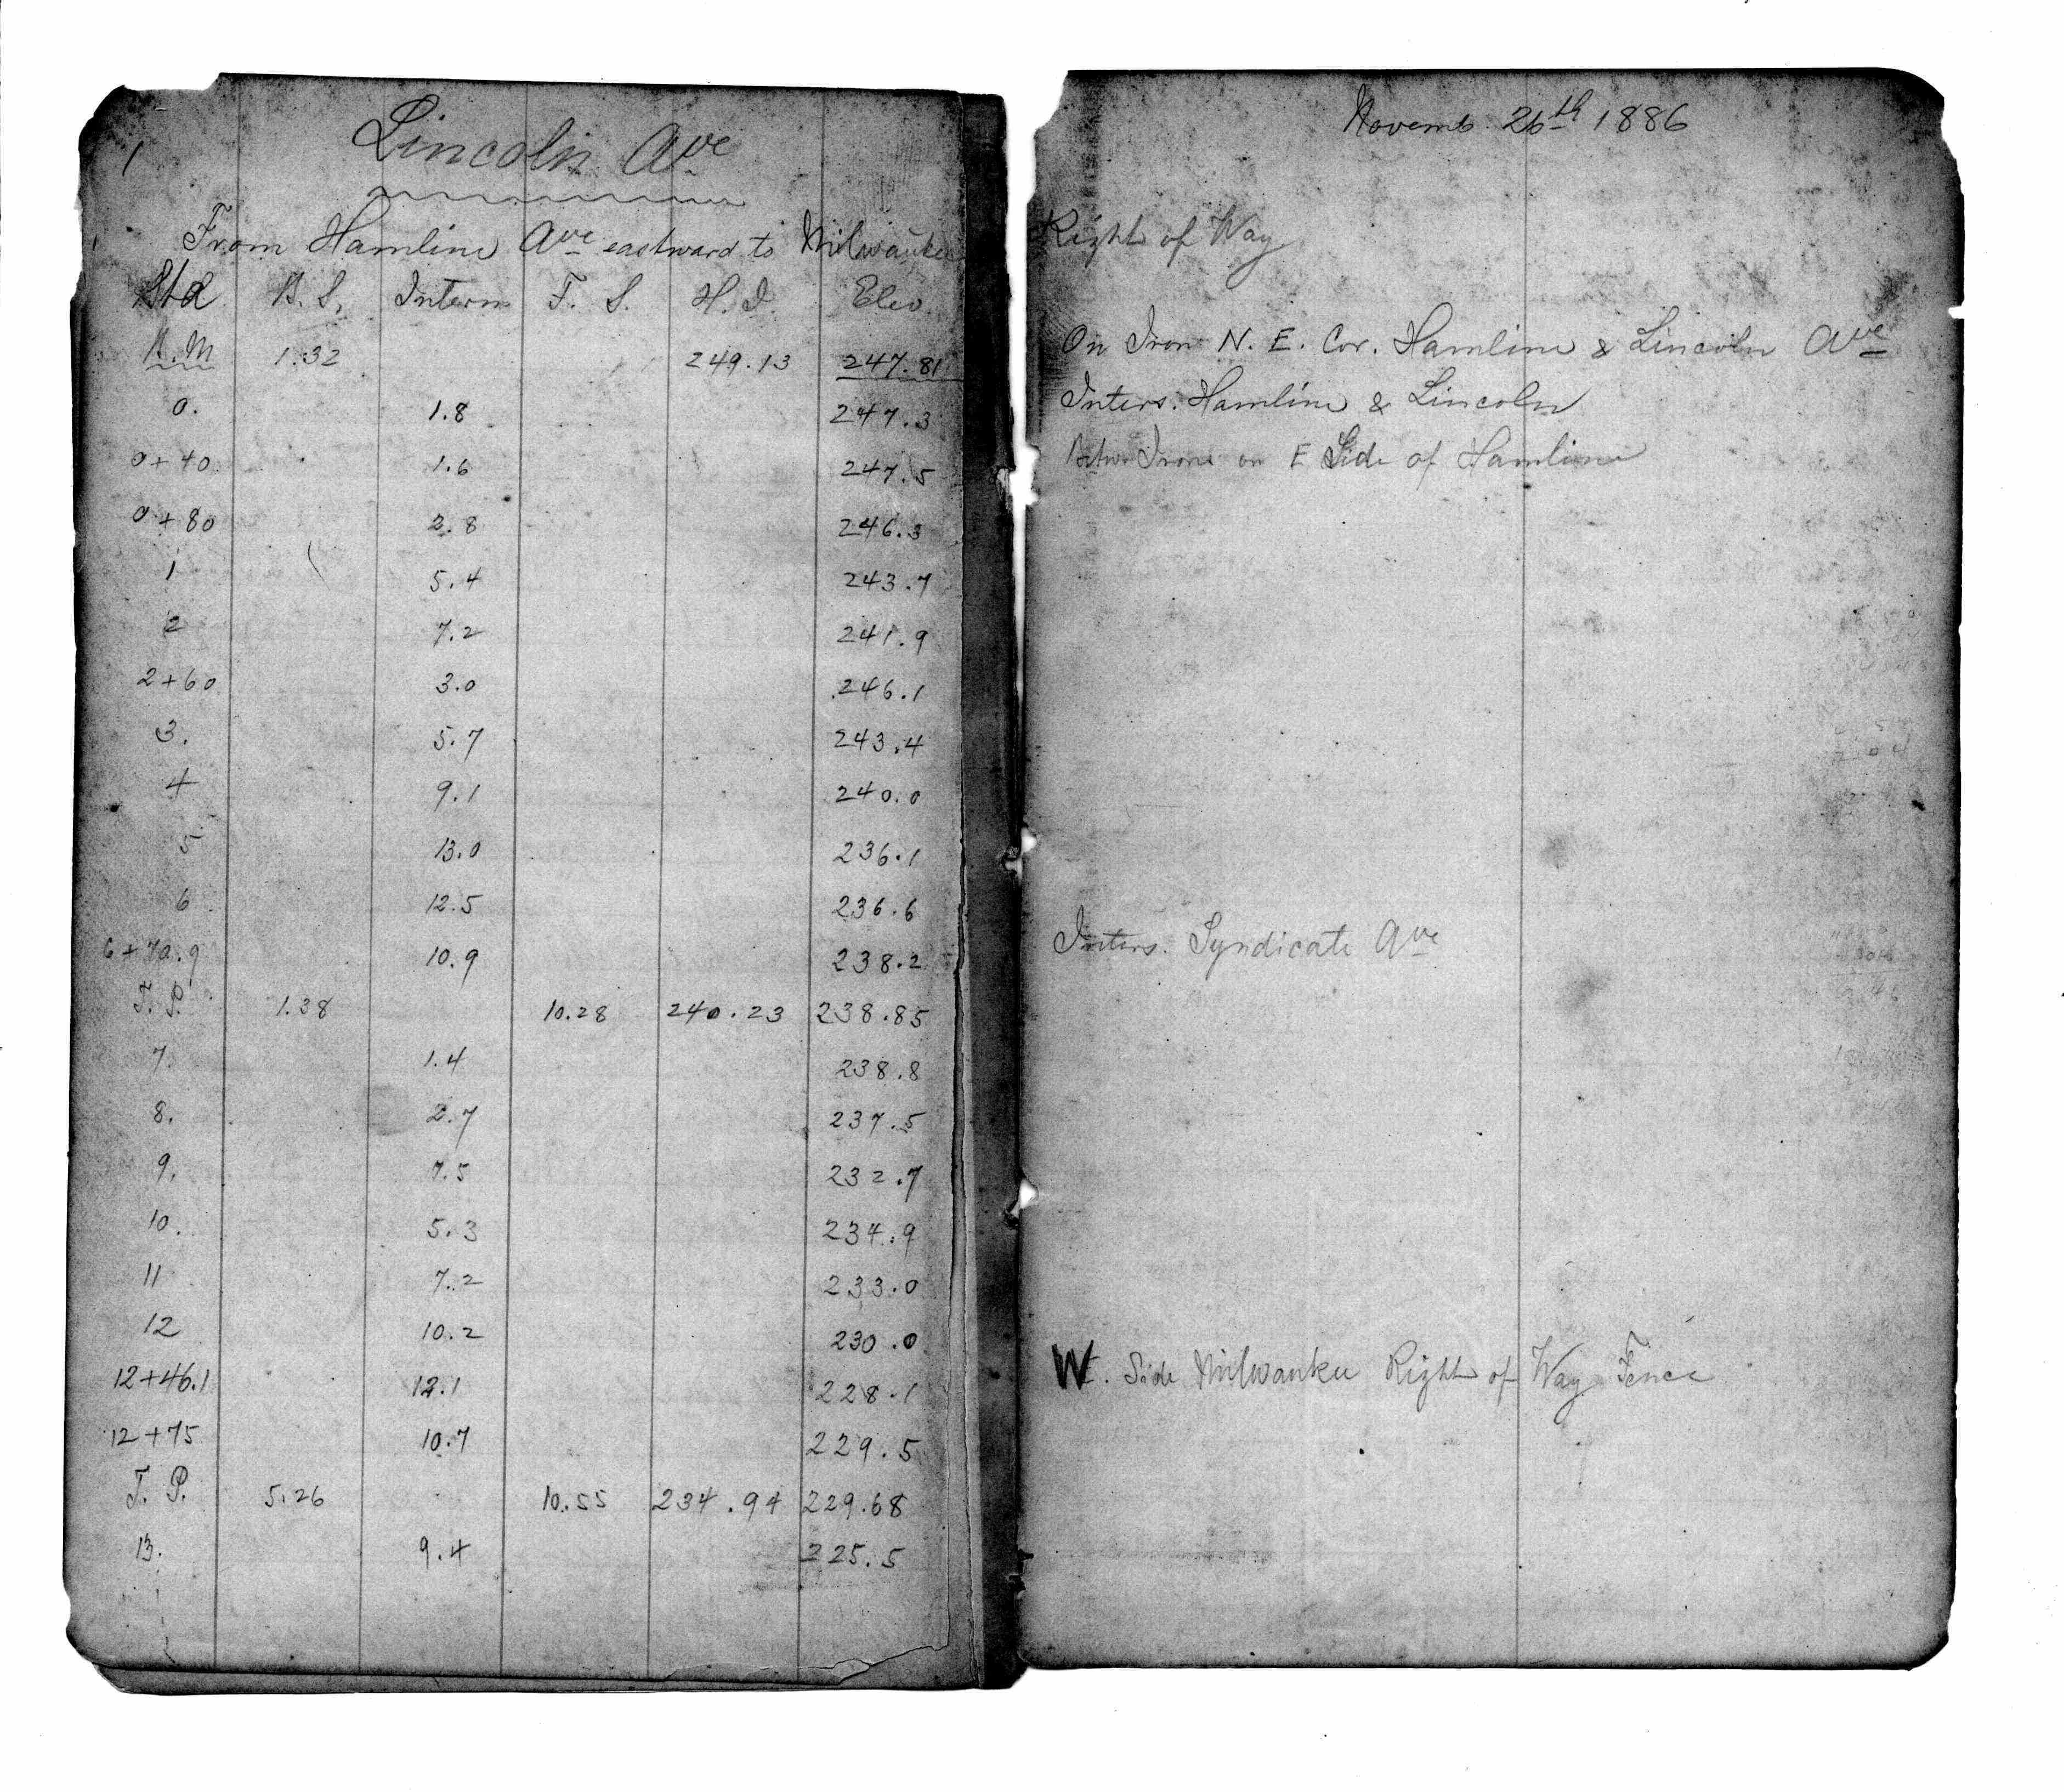 1
Lincoln Ave
Novemb. 26th 1886
From Hamline Ave eastward to Milwaukee Right of Way
Sta B.S. Interm F.S. H.I. Elev.
B.M 1.32 249.13 247.81 On Iron N.E. Cor. Hamline & Lincoln Ave
0. 1.8 247.3 Inters. Hamline & Lincoln
0+40 1.6 247.5 Betw Irons on E Side of Hamline
0+80 2.8 246.3
1 5.4 243.7
2 7.2 241.9
2+60 3.0 246.1
3. 5.7 243.4
4 9.1 240.0
5 13.0 236.1
6. 12.5 236.6
6+70.9 10.9 238.2 Inters. Syndicate Ave
T.P. 1.38 10.28 240.23 238.85
7. 1.4 238.8
8. 2.7 237.5
9. 7.5 232.7
10. 5.3 234.9
11 7.2 233.0
12 10.2 230.0
12+46.1 12.1 228.1 W. Side Milwaukee Right of Way Fence
12+75 10.7 229.5
T.P. 5.26 10.55 234.94 229.68
13. 9.4 225.5